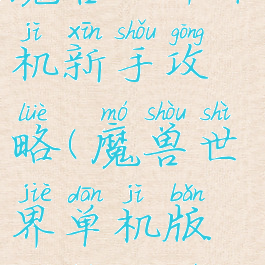 jī xīn shǒu gōng
机新手攻
lüè mó shòu shì
略(魔兽世
jiè dān jī bǎn
界单机版